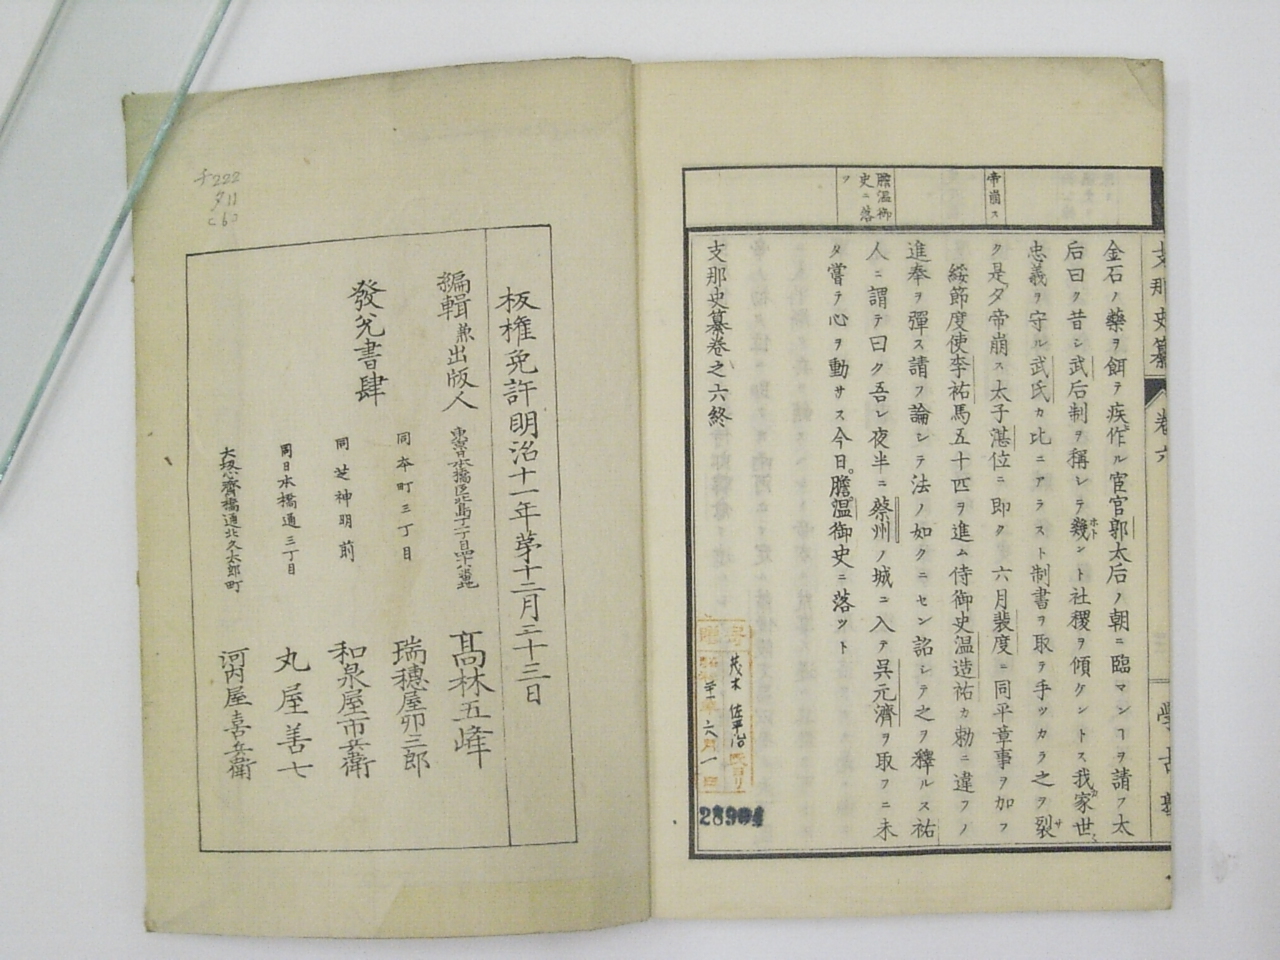 支那史纂
卷六
帝崩ス
膽温御
史ニ落
ツ
金石ノ藥ヲ餌テ疾作ル宦官郭太后ノ朝ニ臨マンヿヲ請フ太
后曰ク昔シ武后制ヲ稱シテ幾ホトント社稷ヲ傾ケントス我家世
忠義ヲ守ル武氏カ比ニアラスト制書ヲ取テ手ツカラ之ヲ裂サ
ク是夕帝崩ス太子湛位ニ即ク六月裴度ニ同平章事ヲ加フ
綏節度使李祐馬五十四ヲ進ム侍御史温造祐カ勅ニ違フノ
進奉ヲ彈ス請フ論シテ法ノ如クニセン詔シテ之ヲ釋ルス祐
人ニ謂テ曰ク吾レ夜半ニ蔡州ノ城ニ入テ呉元濟ヲ取フニ未
タ嘗テ心ヲ動サス今日膽温御史ニ落ツト
支那史纂卷之六終
茂木佐平治氏ヨリ
六月一日
28904
板権免許明治十一年第十二月二十三日
編輯兼出版人
髙林五峰
發兌書肆
同本町三丁目
瑞穗屋卯三郎
同芝神明前
和泉屋市兵衛
同日本橋通三丁目
丸屋善七
大坂心齊橋通北久太郎町
河内屋喜兵衛
チ222
タ11